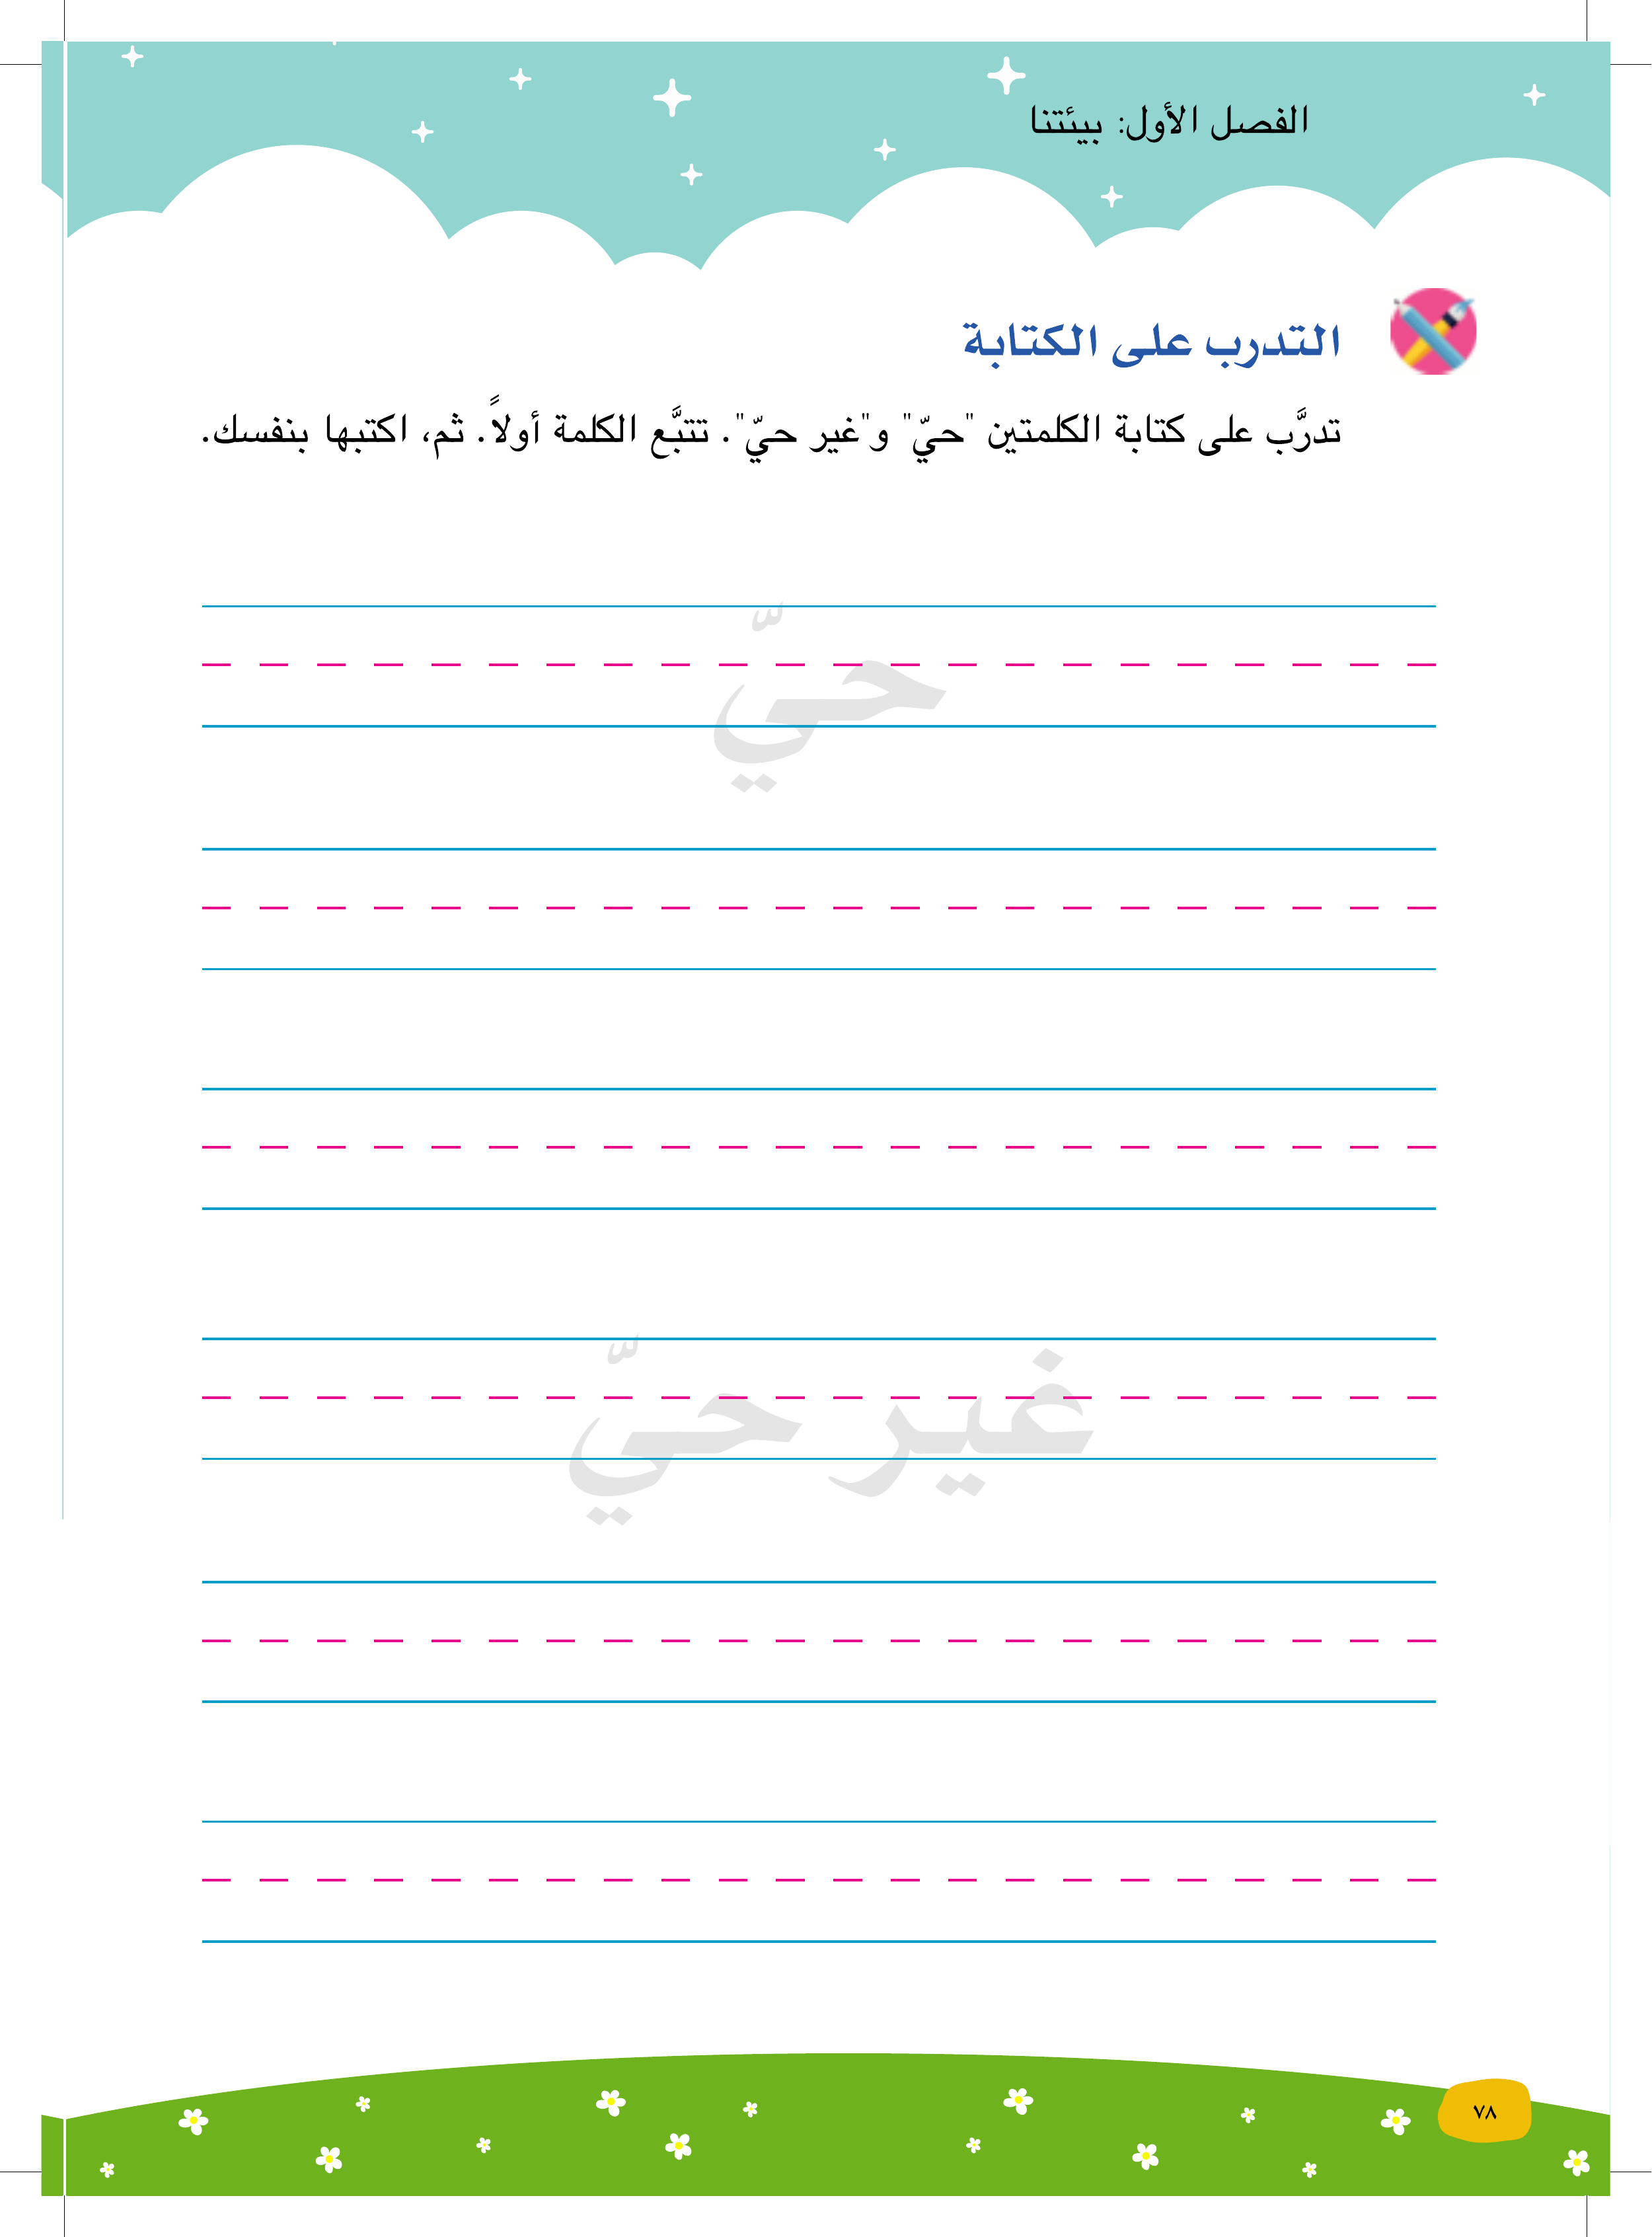 الفصل الأول: بيئتنا
التدرب على الكتابة
تدرَّب على كتابة الكلمتين "حيّ" و"غير حيّ". تتبَّع الكلمة أولاً. ثم، اكتبها بنفسك.
حيّ
غير حيّ
٧٨